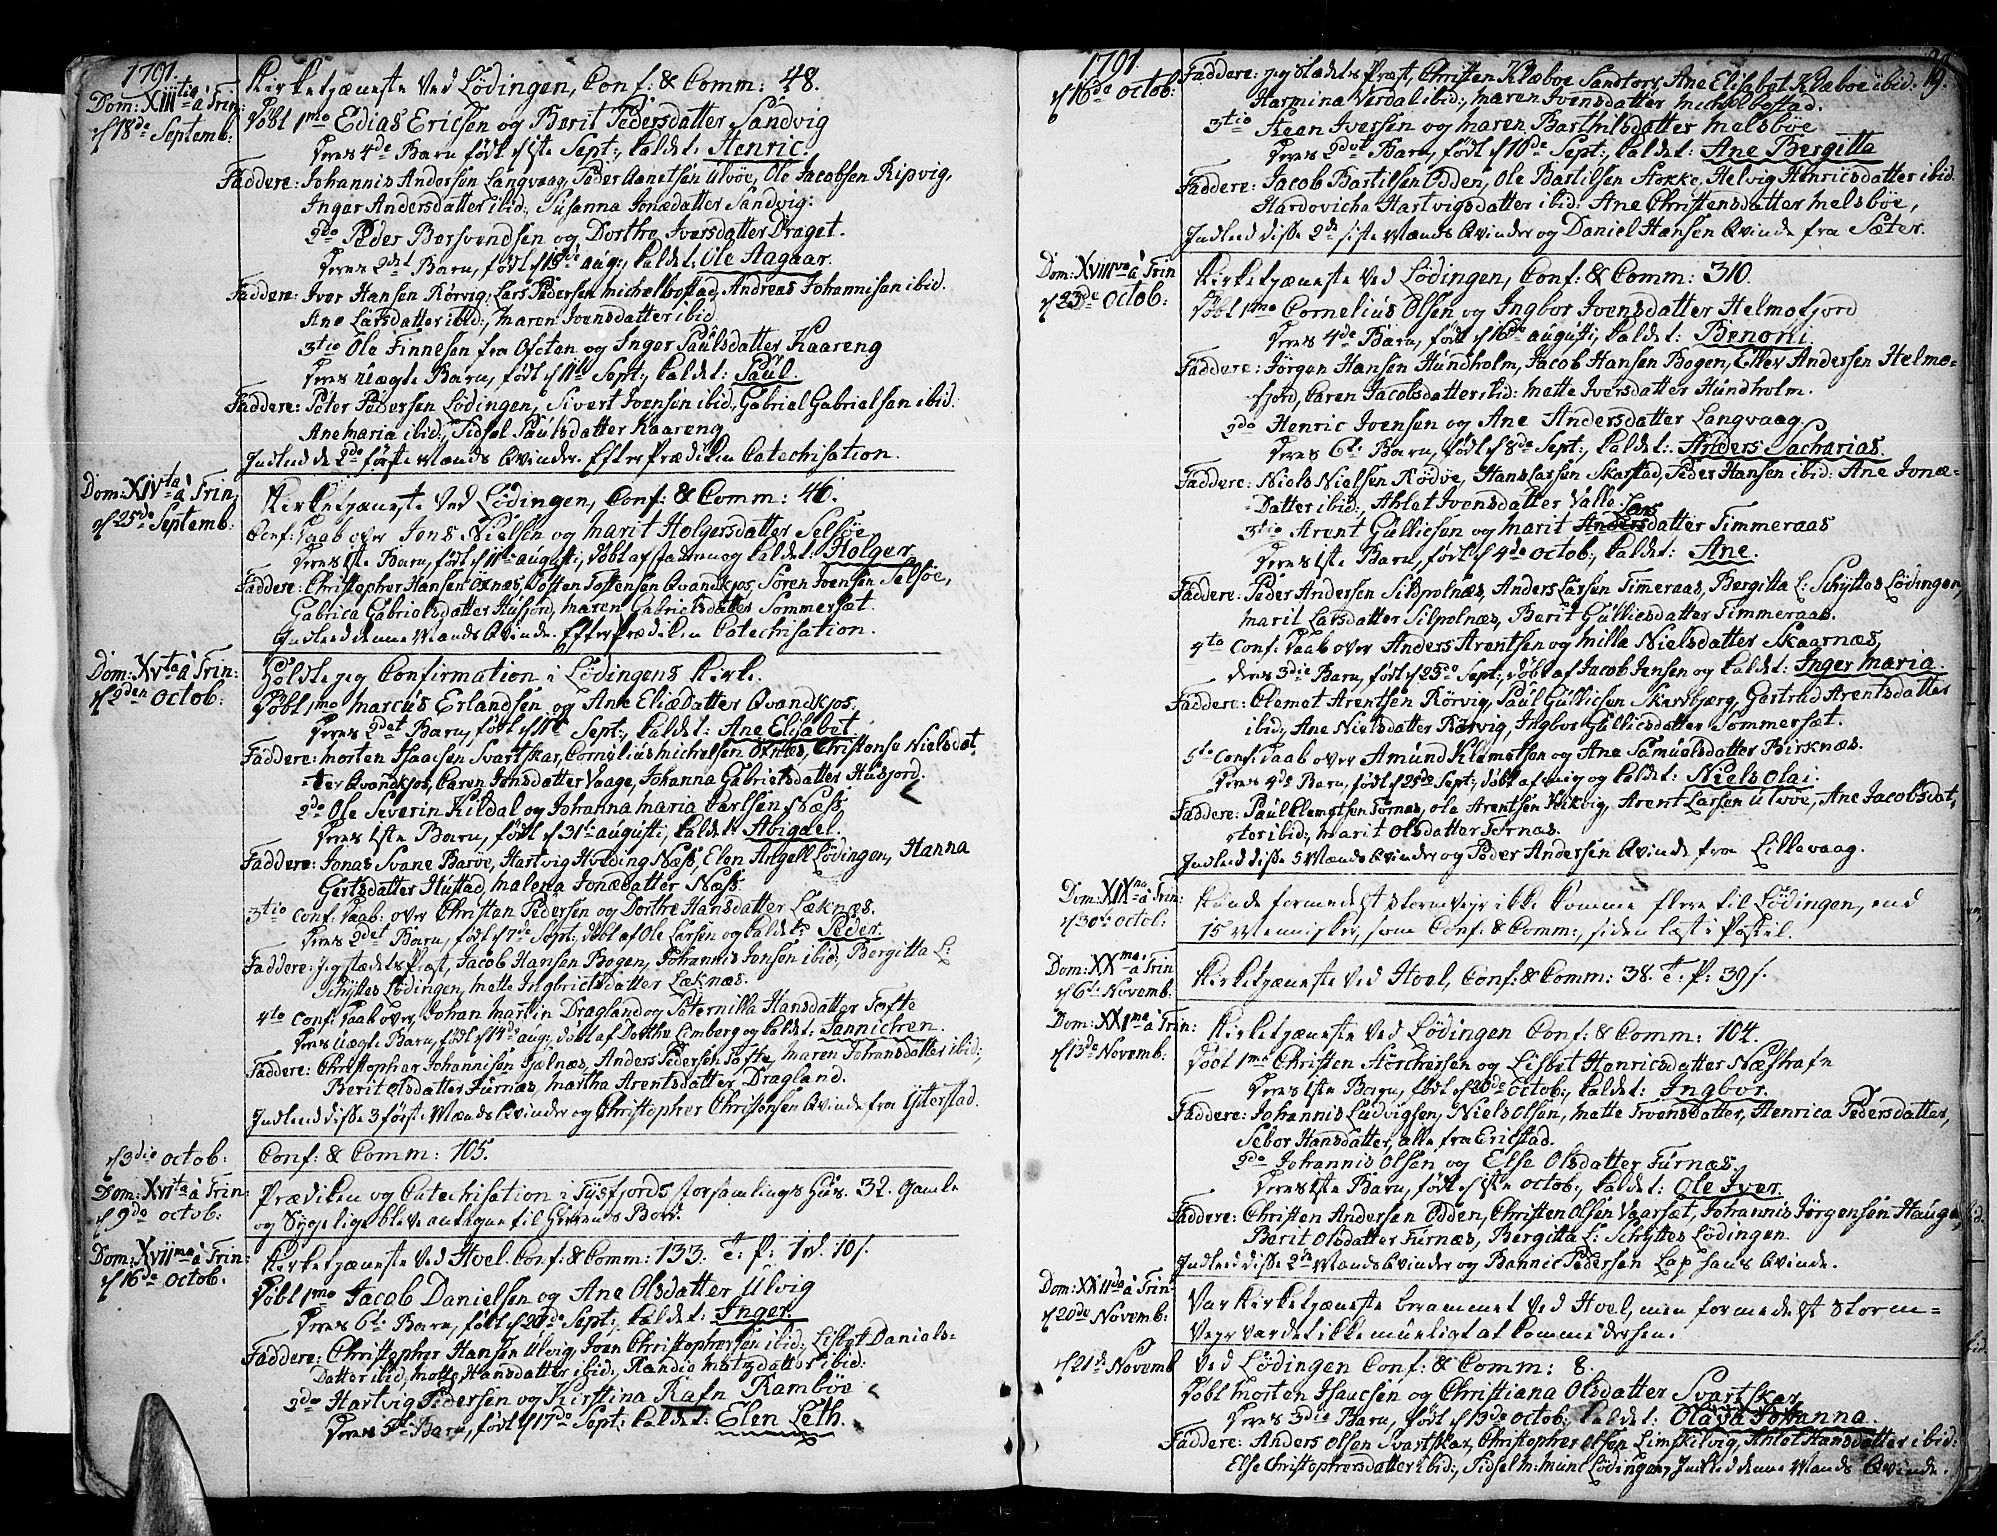 1791.
Dom: XIIItia a Trin:
d 18de Septemb:
Kirketjæneste ved Lödingen, Conf: & Comm: 48.
Döbt 1mo Edias Ericsen og Berit Pedersdatter Sandvig
Deres 4de Barn, födt d 1ste Sept:, kaldet: Henric.
Faddere: Johannis Andersen Langvaag, Peder Ulvöe, Ole Jacobsen Ripvig,
Inger Andersdatter ibid:, Susanna Jonædatter Sandvig:
2do Peder Bersvendsen og Dorthe Iversdatter Draget.
Deres 2det Barn, födt d 19de aug:, kaldet: Ole Aagaar.
Faddere: Iver Hansen Rörvig, Lars Pedersen Michelbostad, Andreas Johannisen ibid.
Ane Larsdatter ibid:, Maren Ivensdatter ibid.
3tio Ole Finnesen fra Ofoten og Inger Paulsdatter Kaareng
Deres uægte Barn, födt d 11te Sept:, kaldet: Paul.
Faddere: Peter Pedersen Lödingen, Sivert Ivensen ibid, Gabriel Gabrielsen ibid:
Anemaria ibid:, Zidsel Paulsdatter Kaareng
Indleed de 2de förste Mænds Qvinder. Efter Prædiken Catechisation.
Dom: XIVta a Trin:
d 25de Septemb:
Kirketjæneste ved Lödingen, Conf: & Comm: 46.
Conf: Daab over Jons Nielsen og Marit Holgersdatter Selsöe
Deres 1ste Barn, födt d 11te augusti, döbt af Faderen og kaldet: Holger
Faddere: Christopher Hansen Oxnæs, Tosten Tostensen Qvandkjos, Sören Ivensen Selsöe,
Gabrica Gabrielsdatter Husjord, Maren Gabrielsdatter Sommersæt.
Indleed denne Mands Qvinde. Efter Prædiken Catechisation.
Dom: XVta a Trin:
d 2den Octob:
Holdte jeg Confirmation i Lödingens Kirke.
Döbt 1mo Marcus Erlandsen og Ane Eliædatter Qvandkjos,
Deres 2det Barn, födt d 11te Sept:, kaldet: Ane Elisabet
Faddere: Morten Isaacsen Svartskar, Cornelius Michelsen Oxnæs, Christense Nielsdat,
ter Qvandkjos, Caren Jonsdatter Vaage, Johanna Gabrielsdatter Husjord.
2do Ole Severin Kildal og Johanna Maria Carlsen Næss
Deres 1ste Barn, födt d 31te augusti, kaldet: Abigael.
Faddere: Jonas Svane Baröe, Hartvig Hveding Næss, Elen Angell Lödingen, Hanna
Gertsdatter Hustad, Malena Jonædatter Næss.
3tio Conf: Daab: over Christen Pedersen og Dorthe Hansdatter Læknæs.
Deres 2det Barn, födt d 7de Sept:, döbt af Ole Larsen og kaldet: Peder.
Faddere: Jeg stædets Præst, Jacob Hansen Bogen, Johannis Jonsen ibid:, Bergitta L:
Schyttes Lödingen, Mette Ingbrictsdatter Læknæs.
4to Conf: Daab over, Johan Martin Dragland og Peternilla Hansdatter Tofte
Deres uægte Barn, födt d 14de aug:, döbt af Dorthe Limberg og kaldet: Jannichen.
Faddere: Christopher Johannisen Fjælnæs, Anders Pedersen Tofte, Maren Johansdatter ibid:,
Berit Olsdatter Furnæs, Martha Arentsdatter, Dragland.
Indleed disse 3 förste Mænds Qvinder og Christopher Christensen Qvinde fra Ytterstad.
d 3die Octob:
Conf: & Comm: 105.
Dom: XVIta a Trin:
d 9de Octob:
Prædiken og Catechisation i Tysfjords forsamlings Hus. 32. Gamle
og Sygelige bleve antegne til Herrens Bord.
Dom: XVIIma a Trin:
d 16de Octob:
Kirketjæneste ved Hoel Conf: & Comm: 133. T: P: 1rd. 10s.
Döbt 1mo Jacob Danielsen og Ane Olsdatter Ulvig
Deres 6te Barn, födt d 20de Sept:, kaldet: Inger
Faddere: Christopher Hansen Ulvig, Iven Christophersen ibid:, Lisbet Daniels-
Datter ibid, Mette Hansdatter ibid:, Randie Matzdatter ibid:
2do Hartvig Pedersen og Kirstina Rafn Ramböe
Deres 5te Barn, födt d 17de Sept:, kaldet: Elen Leth.
1791
d 16de Octob:
19.
Faddere: Jeg stædets Præst, Christen Klæboe Sandtorv, Ane Elisabet Klæboe ibid:
Harmina Verdal ibid:, Maren Ivensdatter Michelbostad.
3tio Keen Iversen og Maren Barthelsdatter Melsböe
Deres 2det Barn, födt d 10de Sept:, kaldet: Ane Bergitta
Faddere: Jacob Bartilsen Odden, Ole Bartilsen Stokke, Helvig Henricsdatter ibid
Hardovicha Hartvigsdatter ibid: Ane Christensdatter Melsböe,
Indleed disse 2de siste Mænds Qvinder og Daniel Hansen Qvinde fra Sæter.
Dom: XVIIIva a Trin
d 23de Octob:
Kirketjæneste ved Lödingen, Conf: & Comm: 310.
Döbt 1mo Cornelius Olsen og Ingbor Ivensdatter Helmofjord
Deres 4de Barn, födt d 16de augusti, kaldet: Benoni
Faddere: Jörgen Hansen Hundholm, Jacob Hansen Bogen, Ellev Andersen Helmo-
fjord, Caren Jacobsdatter ibid: Mette Iversdatter Hundholm.
2do Henric Ivensen og Ane Andersdatter Langvaag.
Deres 6te Barn, födt d 8de Sept:, kaldet: Anders Zacharias.
Faddere: Niels Nielsen Rödöe, Hans Larsen Skarstad, Peder Hansen ibid: Ane Jonæ-
Datter ibid:, Ahlet Ivensdatter Valle.
3tio Arent Gulliesen og Marit Larsdatter Timmeraas
Deres 1ste Barn, födt d 4de Octob:, kaldet: Ane.
Faddere: Peder Andersen Silpolnæs, Anders Larsen Timmeraas, Bergitta L: Schyttes Lödingen,
Marit Larsdatter Silpolnæs, Berit Gulliesdatter Timmeraas.
4to Conf: Daab over Anders Arentsen og Milla Nielsdatter Skaarnæs,
deres 3die Barn, födt d 25de Sept:, döbt af Jacob Jensen og kaldet: Inger Maria.
Faddere: Clemet Arentsen Rörvig, Paul Gulliesen Skarsbærg, Gertrud Arentsdatter
ibid:, Ane Nielsdatter Rörvig, Ingbor Gulliesdatter Sommersæt.
5te Conf: Daab over Amund Klemetsen og Ane Samuelsdatter Birknæs.
Deres 4de Barn, födt d 25de Sept:, döbt af mig og kaldet: Niels Olai
Faddere: Paul Clemetsen Fornæs, Ole Arentsen Kikvig, Arent Larsen Ulvöe, Ane Jacobsdat,
ter ibid:, Marit Olsdatter Fornæs.
Indleed disse 5 Mænds Qvinder og Peder Andersen Qvinde fra Lillevaag.
Dom: XIXna a Trin:
d 30te Octob:
Kunde formedelst stormveyr ikke komme flere til Lödingen, end
15 Mennisker, som Conf: & Comm:, siden læst i Postil.
Dom: XXma a Trin
d 6te Novemb.
Kirketjæneste ved Hoel, Conf: & Comm: 38. T: P: 39s.
Dom: XXIma a Trin:
d 13de Novemb:
Kirketjæneste ved Lödingen Conf: & Comm: 104.
Döbt 1mo Christen Störchersen og Lisbet Henricsdatter Næshafn
Deres 1ste Barn, födt d 20de Octob:, kaldet: Ingbor.
Faddere: Johannis Ludvigsen, Niels Olsen, Mette Ivensdatter, Henrica Pedersdatter,
Sebor Hansdatter, alle fra Ericstad.
2do Johannis Olsen og Else Olsdatter Furnæs
Deres 1ste Barn, födt d 1ste Octob:, kaldet: Ole Iver.
Faddere: Christen Andersen Odden, Christen Olsen Vaarsæt, Johannis Jörgensen Haugen
Berit Olsdatter Furnæs, Bergitta L: Schyttes Lödingen.
Indleed disse 2de Mænds Qvinder og Bannic Pedersen Lap hans Qvinde.
Dom: XXIIda a Trin:
d 20de Novemb:
Var Kirketjæneste berammet ved Hoel, men formedelst Storm-
Veyr var det ikke mueligt at komme dersen.
d 21de Novemb
Ved Lödingen Conf: & Comm: 8.
Döbt Morten Isaacsen og Christiana Olsdatter Svartskar
Deres 3die Barn, födt d 13de Octob:, kaldet: Olava Johanna.
Faddere: Anders Olsen Svartskar, Christopher Olsen Limskilvig, Ahlet Hansdatter ibid:
Else Christophersdatter ibid:, Zidsel M: Munc Lödingen, Indleed denne Mands Qvinde.